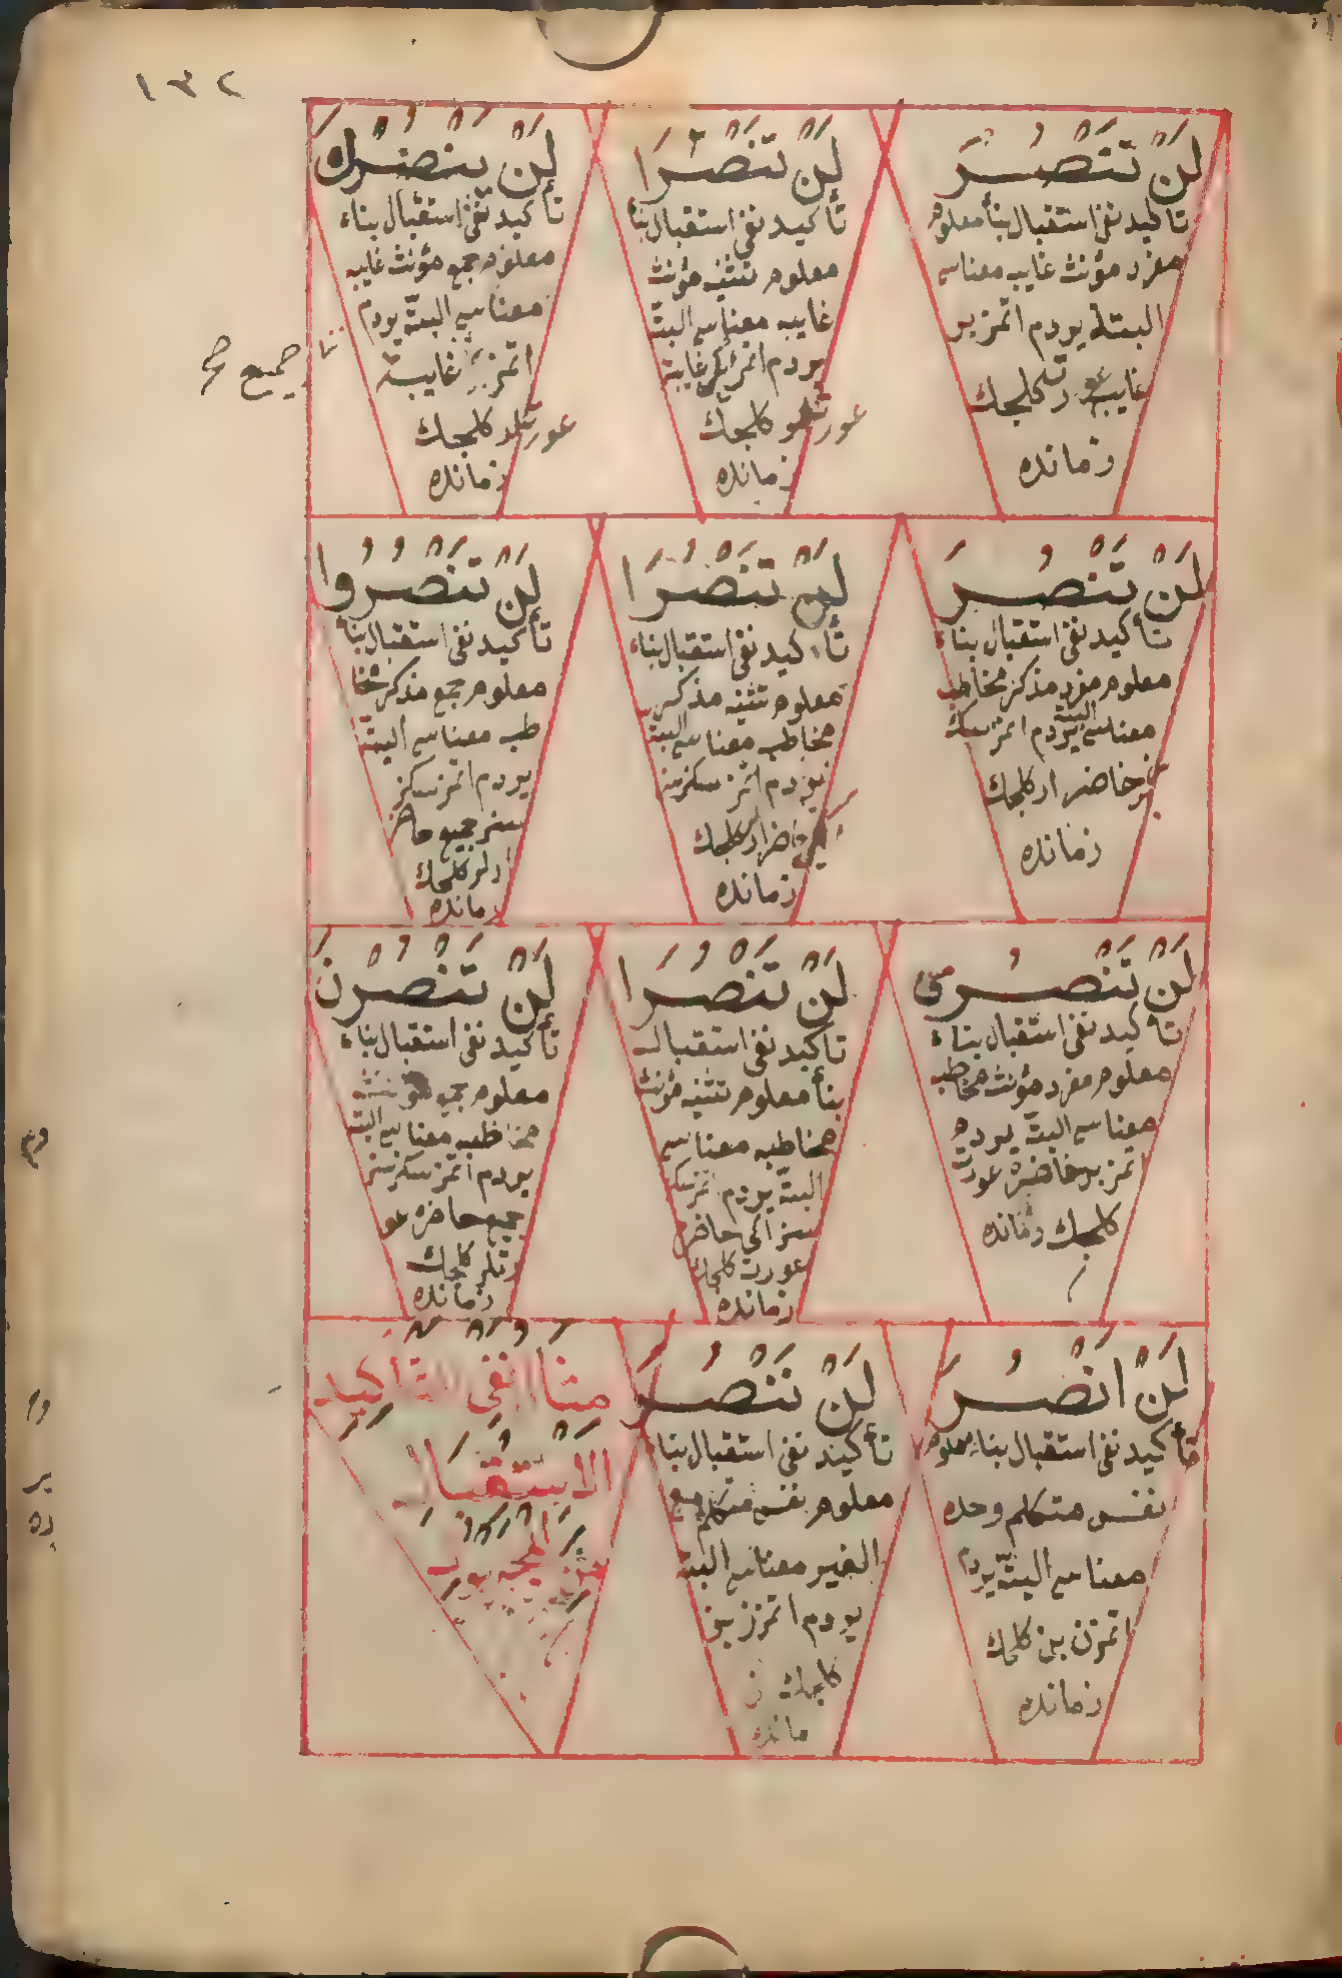 ١٣٢
لَنْ تَنْصُرَ
تأكيد نفى استقبال بنأ معلوم
مفرد مؤنث غايب معناسى
البتة يردم اتمز بر
غايب عورتكلجك
زمانده
لَنْ تَنْصُرَا
تأكيد نفى استقبال بنأ
معلوم تثنيه مؤنث
غايبه معناسى البتّه
يردم اتمز ايكى غايبه
عورتلر كلجك
زمانده
لَنْ ينصرن
تأكيد نفى استقبال بناء
معلوم جمع مؤنث غايبه
معناسى البتّه يردم
اتمز غايبة
عورتلر كلجك
زمانده
جميع صح
لَنْ تَنْصُرَ
تأكيد نفى استقبال بناء
معلوم مفرد مذكر مخاطب
معناسى البتة يردم اتمزسك
سن حاضر ار كلجك
زمانده
لَنْ تَنْصُرَا
تأكيد نفى استقبال بناء
معلوم تثنيه مذكر
مخاطب معناسى البته
يردم اتمزسكز سز
حاضر ار كلجك
زمانده
لَنْ تَنْصُرُوا
تأكيد نفى استقبال بنأ
معلوم جمع مذكر مخا
طب معناسى البتّه
يردم اتمزسكز
سز جميع حاضر
ارلر كلجك
زمانده
لَنْ تَنْصُرِى
تأكيد نفى استقبال بناء
معلوم مفرد مؤنث مخاطبه
معناسى البتّه يردم
اتمز بر حاضره عورت
كلجك زمانده
لَنْ تَنْصُرَا
تأكيد نفى استقبال
بنأ معلوم تثنيه مؤنث
مخاطبه معناسى
البتّه يردم اتمزسكز
سز ايكى حاضره
عورت كلجك
زمانده
لَنْ تَنْصُرْنَ
تأكيد نفى استقبال بناء
معلوم جمع مؤنث
مخاطبه معناسى البته
يردم اتمزسكز سز
جميع حاضره عو
رتلر كلجك
زمانده
لَنْ اَنْصُرَ
تأكيد نفى استقبال بناء معلوم
نفس متكلم وحده
معناسى البتّه يردم
اتمزن بن كلجك
زمانده
لَنْ نَنْصُرَ
تأكيد نفى استقبال بناء
معلوم نفس متكلم مع
الغير معناسى البته
يردم اتمزز بز
كلجك ز
مانده
مثال نفى التأكيد
الاستقبال
المجهول